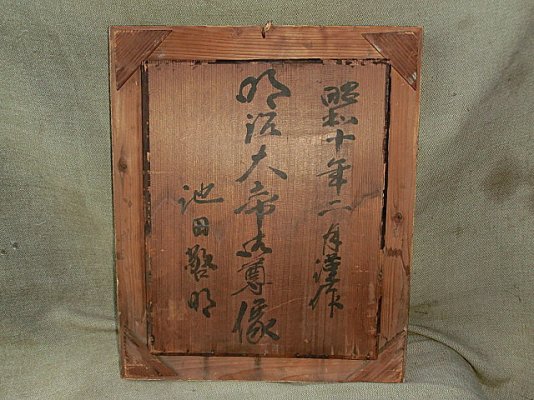 昭和十年二月謹作
明治大帝御尊像
池田警明